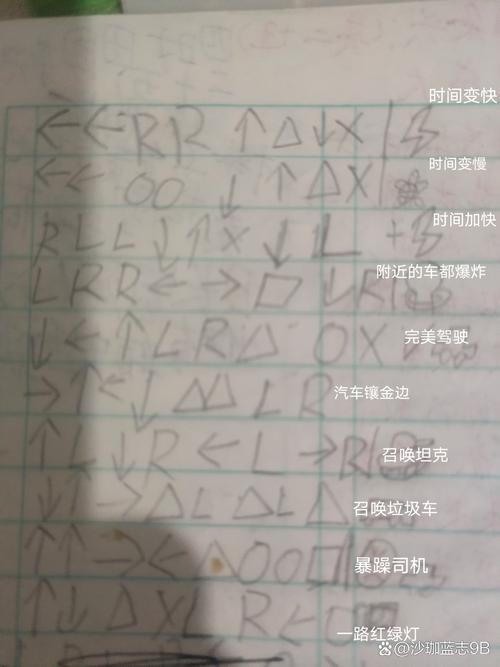 ←←RR↑△↓X| 时间变快
←←OO↓↑△X| 时间变慢
RLL↓↑X↓L+ 时间加快
LRR←→□↓R| 附近的车都爆炸
↓←↑LR△OX 完美驾驶
→↑←↓△△LR 汽车镶金边
↑L↓R←L→R| 召唤坦克
↓↑→△L△L△ 召唤垃圾车
↑↑→←△OO□| 暴躁司机
↑↓△XLR←□ 一路红绿灯
@沙珈蓝志9B